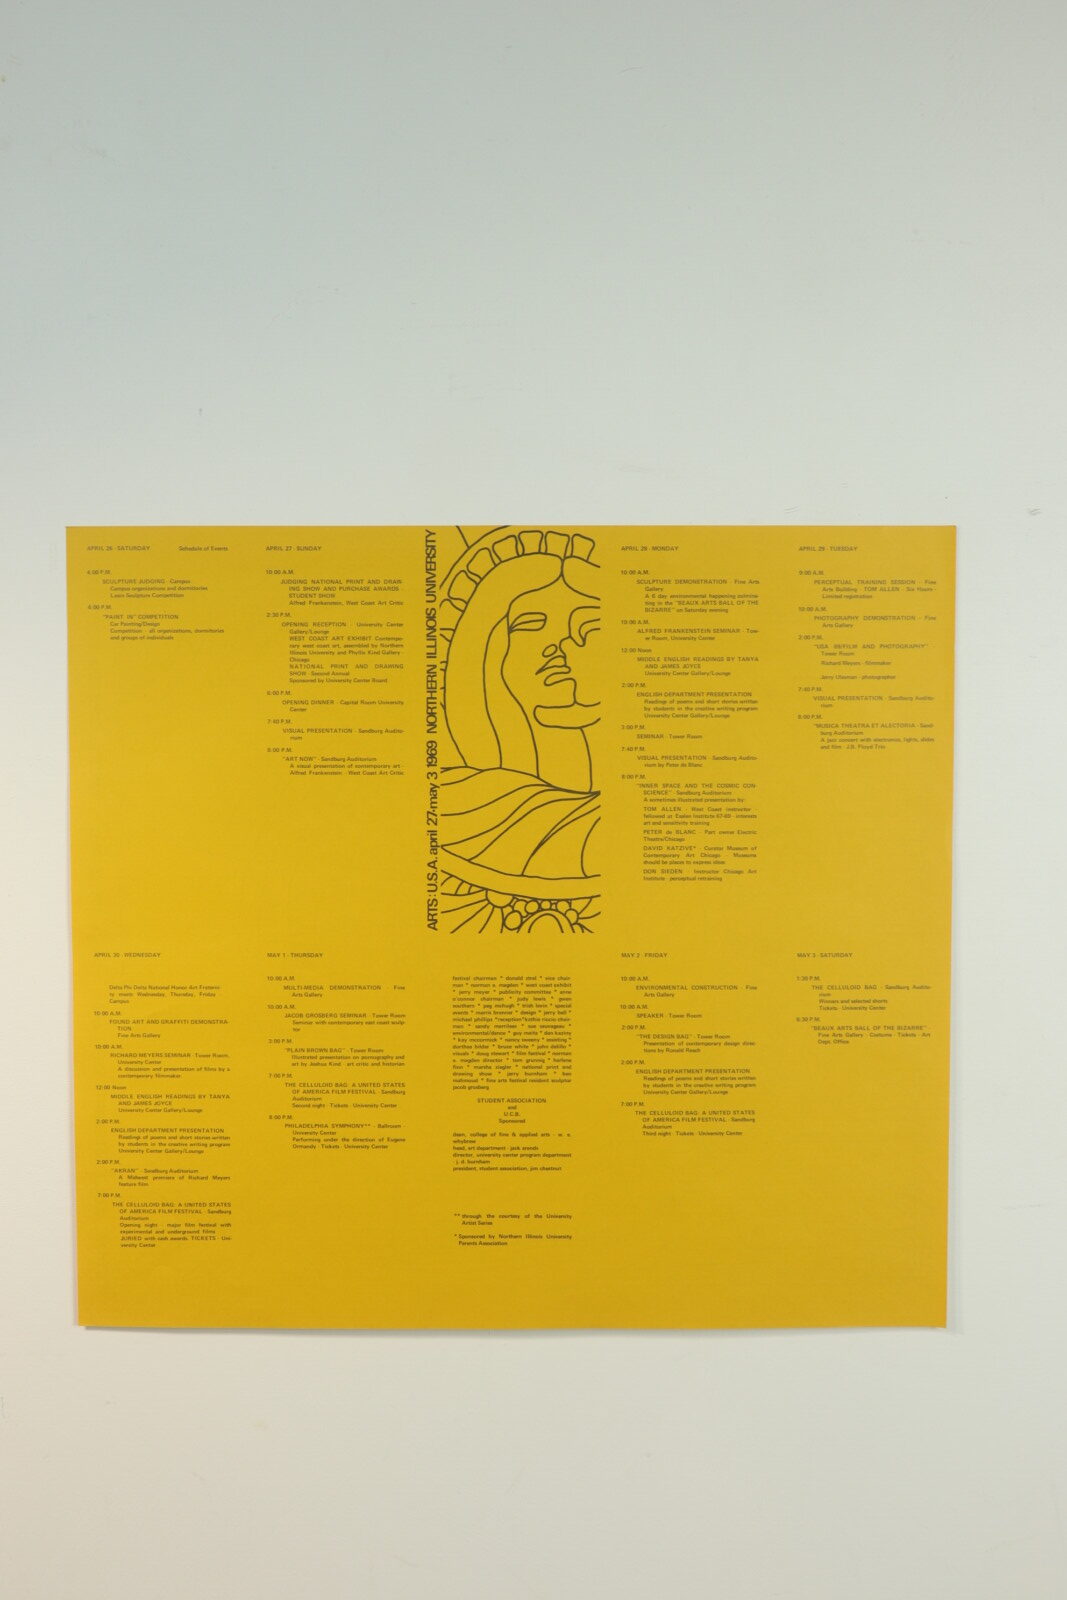 APRIL 26 · SATURDAY
Schedule of Events
4:00 P.M.
SCULPTURE JUDGING · Campus
Campus organizations and dormitories
Lawn Sculpture Competition
4:00 P.M.
"PAINT IN" COMPETITION
Car Painting/Design
Competition · all organizations, dormitories
and groups of individuals
APRIL 27 · SUNDAY
10:00 A.M.
JUDGING NATIONAL PRINT AND DRAW-
ING SHOW AND PURCHASE AWARDS ·
STUDENT SHOW
Alfred Frankenstein, West Coast Art Critic
2:30 P.M.
OPENING RECEPTION · University Center
Gallery/Lounge
WEST COAST ART EXHIBIT Contempo-
rary west coast art, assembled by Northern
Illinois University and Phyllis Kind Gallery ·
Chicago
NATIONAL PRINT AND DRAWING
SHOW · Second Annual
Sponsored by University Center Board
6:00 P.M.
OPENING DINNER · Capitol Room University
Center
7:40 P.M.
VISUAL PRESENTATION · Sandburg Audito-
rium
8:00 P.M.
"ART NOW" · Sandburg Auditorium
A visual presentation of contemporary art ·
Alfred Frankenstein · West Coast Art Critic
ARTS:U.S.A. april 27·may 3 1969 NORTHERN ILLINOIS UNIVERSITY
APRIL 28 · MONDAY
10:00 A.M.
SCULPTURE DEMONSTRATION · Fine Arts
Gallery
A 6 day environmental happening culmina-
ting in the "BEAUX ARTS BALL OF THE
BIZARRE" on Saturday evening
10:00 A.M.
ALFRED FRANKENSTEIN SEMINAR · Tow-
er Room, University Center
12:00 Noon
MIDDLE ENGLISH READINGS BY TANYA
AND JAMES JOYCE
University Center Gallery/Lounge
2:00 P.M.
ENGLISH DEPARTMENT PRESENTATION
Readings of poems and short stories written
by students in the creative writing program
University Center Gallery/Lounge
3:00 P.M.
SEMINAR · Tower Room
7:40 P.M.
VISUAL PRESENTATION · Sandburg Audito-
rium by Peter de Blanc
8:00 P.M.
"INNER SPACE AND THE COSMIC CON-
SCIENCE" · Sandburg Auditorium
A sometimes illustrated presentation by:
TOM ALLEN · West Coast instructor ·
fellowed at Esalen Institute 67-69 · interests
art and sensitivity training
PETER de BLANC · Part owner Electric
Theatre/Chicago
DAVID KATZIVE* · Curator Museum of
Contemporary Art Chicago · Museums
should be places to express ideas
DON SIEDEN · Instructor Chicago Art
Institute · perceptual retraining
APRIL 29 · TUESDAY
9:00 A.M.
PERCEPTUAL TRAINING SESSION · Fine
Arts Building · TOM ALLEN · Six Hours ·
Limited registration
10:00 A.M.
PHOTOGRAPHY DEMONSTRATION · Fine
Arts Gallery
2:00 P.M.
"USA 99/FILM AND PHOTOGRAPHY"
Tower Room
Richard Meyers · filmmaker
Jerry Ulesman · photographer
7:40 P.M.
VISUAL PRESENTATION · Sandburg Audito-
rium
8:00 P.M.
"MUSICA THEATRA ET ALECTORIA · Sand-
burg Auditorium
A jazz concert with electronics, lights, slides
and film · J.B. Floyd Trio
APRIL 30 · WEDNESDAY
Delta Phi Delta National Honor Art Fraterni-
ty meets Wednesday, Thursday, Friday ·
Campus
10:00 A.M.
FOUND ART AND GRAFFITI DEMONSTRA-
TION
Fine Arts Gallery
10:00 A.M.
RICHARD MEYERS SEMINAR · Tower Room,
University Center
A discussion and presentation of films by a
contemporary filmmaker.
12:00 Noon
MIDDLE ENGLISH READINGS BY TANYA
AND JAMES JOYCE
University Center Gallery/Lounge
2:00 P.M.
ENGLISH DEPARTMENT PRESENTATION
Readings of poems and short stories written
by students in the creative writing program
University Center Gallery/Lounge
2:00 P.M.
"AKRAN" · Sandburg Auditorium
A Midwest premiere of Richard Meyers
feature film
7:00 P.M.
THE CELLULOID BAG: A UNITED STATES
OF AMERICA FILM FESTIVAL · Sandburg
Auditorium
Opening night · major film festival with
experimental and underground films
JURIED with cash awards TICKETS · Uni-
versity Center
MAY 1 · THURSDAY
10:00 A.M.
MULTI-MEDIA DEMONSTRATION · Fine
Arts Gallery
10:00 A.M.
JACOB GROSBERG SEMINAR · Tower Room
Seminar with contemporary east coast sculp-
tor
3:00 P.M.
"PLAIN BROWN BAG" · Tower Room
Illustrated presentation on pornography and
art by Joshua Kind · art critic and historian
7:00 P.M.
THE CELLULOID BAG: A UNITED STATES
OF AMERICA FILM FESTIVAL · Sandburg
Auditorium
Second night · Tickets · University Center
8:00 P.M.
PHILADELPHIA SYMPHONY** · Ballroom ·
University Center
Performing under the direction of Eugene
Ormandy · Tickets · University Center
festival chairman * donald strel * vice chair-
man * norman e. magden * west coast exhibit
* jerry meyer * publicity committee * anne
o'connor chairman * judy lewis * gwen
southern * peg mchugh * trish levin * special
events * morris brenner * design * jerry bell *
michael phillips *reception*kathie riccio chair-
man * sandy morrison * sue sauvageau *
environmental/dance * guy melta * don kaziny
* kay mccormick * nancy sweeny * assisting *
dorthea bilder * bruce white * john dekilio *
visuals * doug stewart * film festival * norman
e. magden director * tom grunnig * herlene
finn * marsha ziegler * national print and
drawing show * jerry burnham * ben
mahmoud * fine arts festival resident sculptor
jacob grosberg
STUDENT ASSOCIATION
and
U.C.B.
Sponsored
dean, college of fine & applied arts · w. e.
whybrew
head, art department · jack arends
director, university center program department
· j. d. burnham
president, student association, jim chestnut
** through the courtesy of the University
Artist Series
* Sponsored by Northern Illinois University
Parents Association
MAY 2 · FRIDAY
10:00 A.M.
ENVIRONMENTAL CONSTRUCTION · Fine
Arts Gallery
10:00 A.M.
SPEAKER · Tower Room
2:00 P.M.
"THE DESIGN BAG" · Tower Room
Presentation of contemporary design direc-
tions by Ronald Resch
2:00 P.M.
ENGLISH DEPARTMENT PRESENTATION
Readings of poems and short stories written
by students in the creative writing program
University Center Gallery/Lounge
7:00 P.M.
THE CELLULOID BAG: A UNITED STATES
OF AMERICA FILM FESTIVAL · Sandburg
Auditorium
Third night · Tickets · University Center
MAY 3 · SATURDAY
1:30 P.M.
THE CELLULOID BAG · Sandburg Audito-
rium
Winners and selected shorts
Tickets · University Center
8:30 P.M.
"BEAUX ARTS BALL OF THE BIZARRE" ·
Fine Arts Gallery · Costume · Tickets · Art
Dept. Office